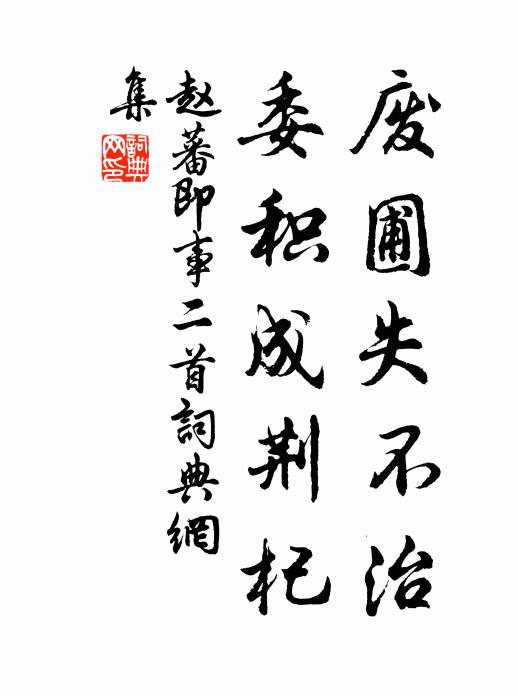 废圃失不治
委积成荆杞
赵蕃即事二首詞典網
集
詞典
网印